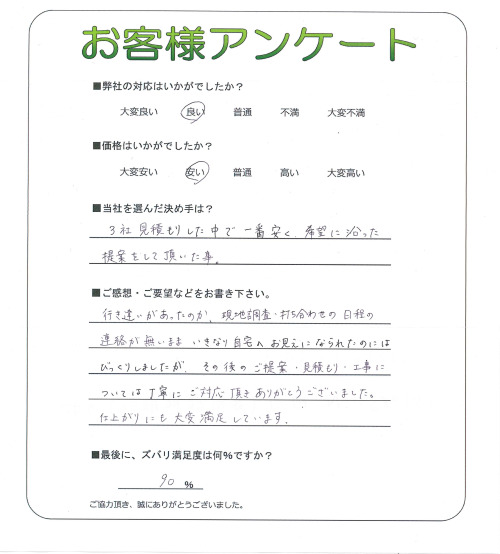 お客様アンケート
■弊社の対応はいかがでしたか？
大変良い 良い 普通 不満 大変不満
■価格はいかがでしたか？
大変安い 安い 普通 高い 大変高い
■当社を選んだ決め手は？
3社見積もりした中で一番安く、希望に沿った
提案をして頂いた事。
■ご感想・ご要望などをお書き下さい。
行き違いがあったのか、現地調査・打ち合わせの日程の
連絡が無いまま いきなり自宅へお見えになられたのには
びっくりしましたが、その後のご提案・見積もり・工事に
ついては丁寧にご対応頂きありがとうございました。
仕上がりにも大変満足しています。
■最後に、ズバリ満足度は何％ですか？
90 ％
ご協力頂き、誠にありがとうございました。